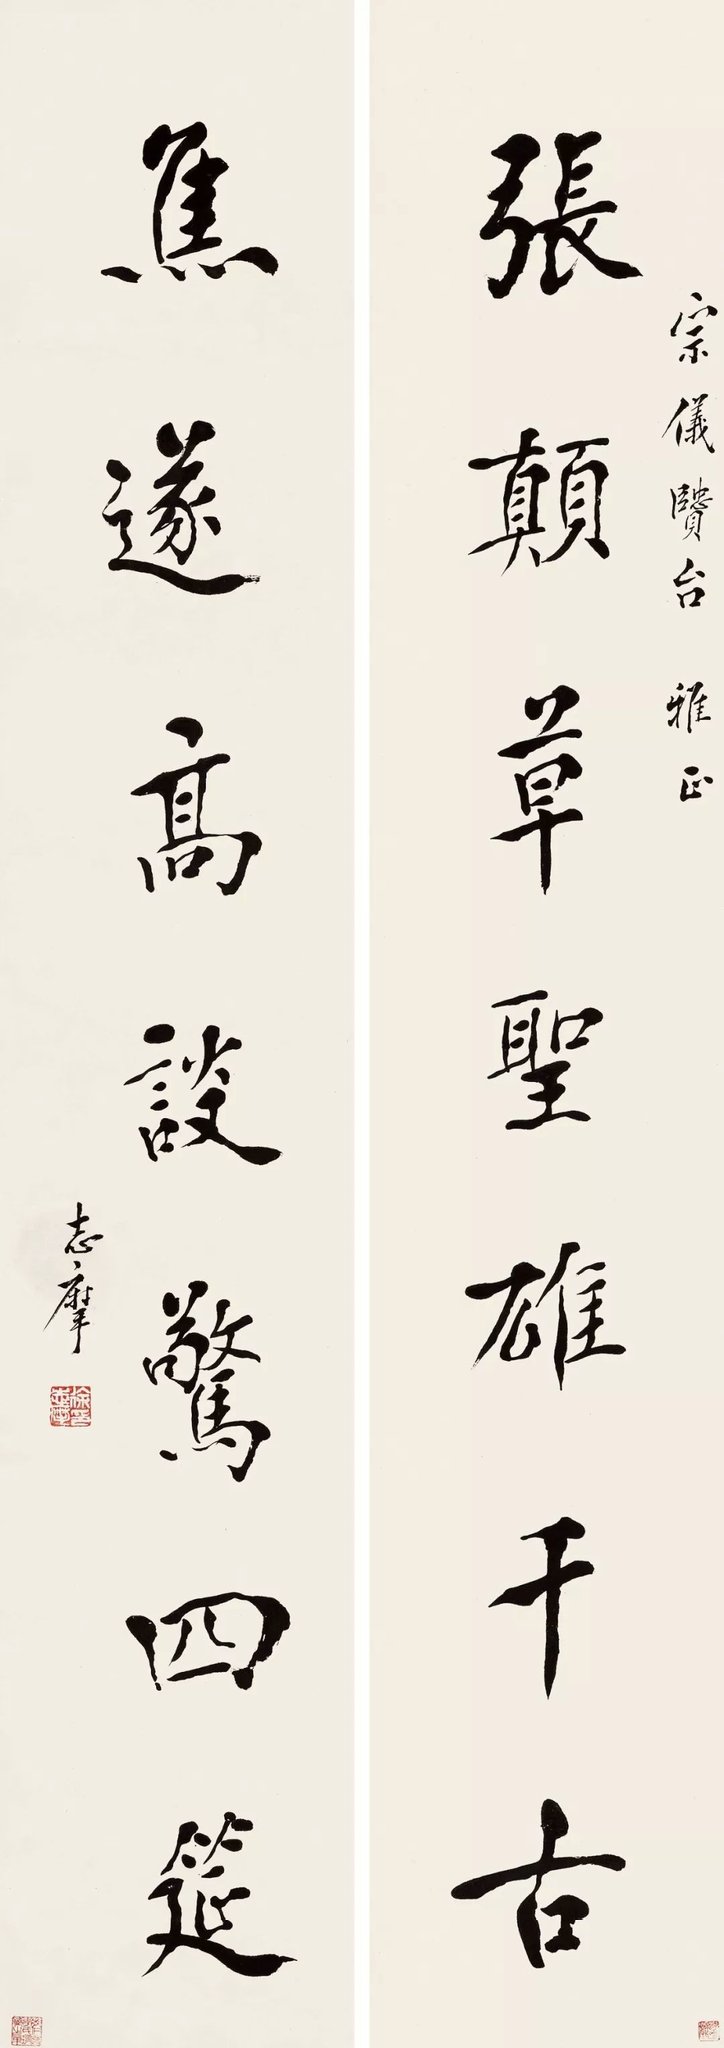 張顛草聖雄千古
宗儀賢台 雅正
焦遂高談驚四筵
志摩